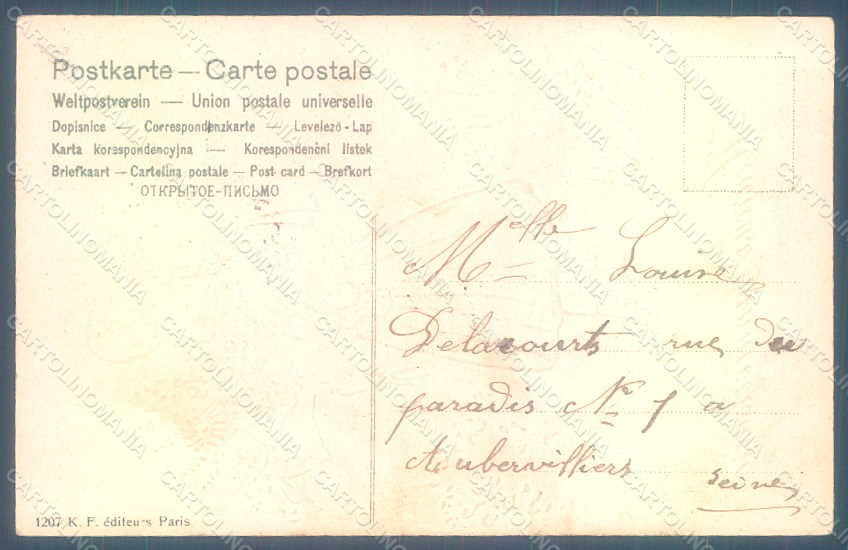 Postkarte — Carte postale
Weltpostverein — Union postale universelle
Dopisnice — Correspondenzkarte — Levelező-Lap
Karta korespondencyjna — Korespondenční lístek
Briefkaart — Cartolina postale — Post card — Brefkort
ОТКРЫТОЕ-ПИСЬМО
Melle Louise
Delacourts rue du
paradis No 1 a
Aubervilliers
Seine
1207 K. F. éditeurs Paris
CARTOLINOMANIA